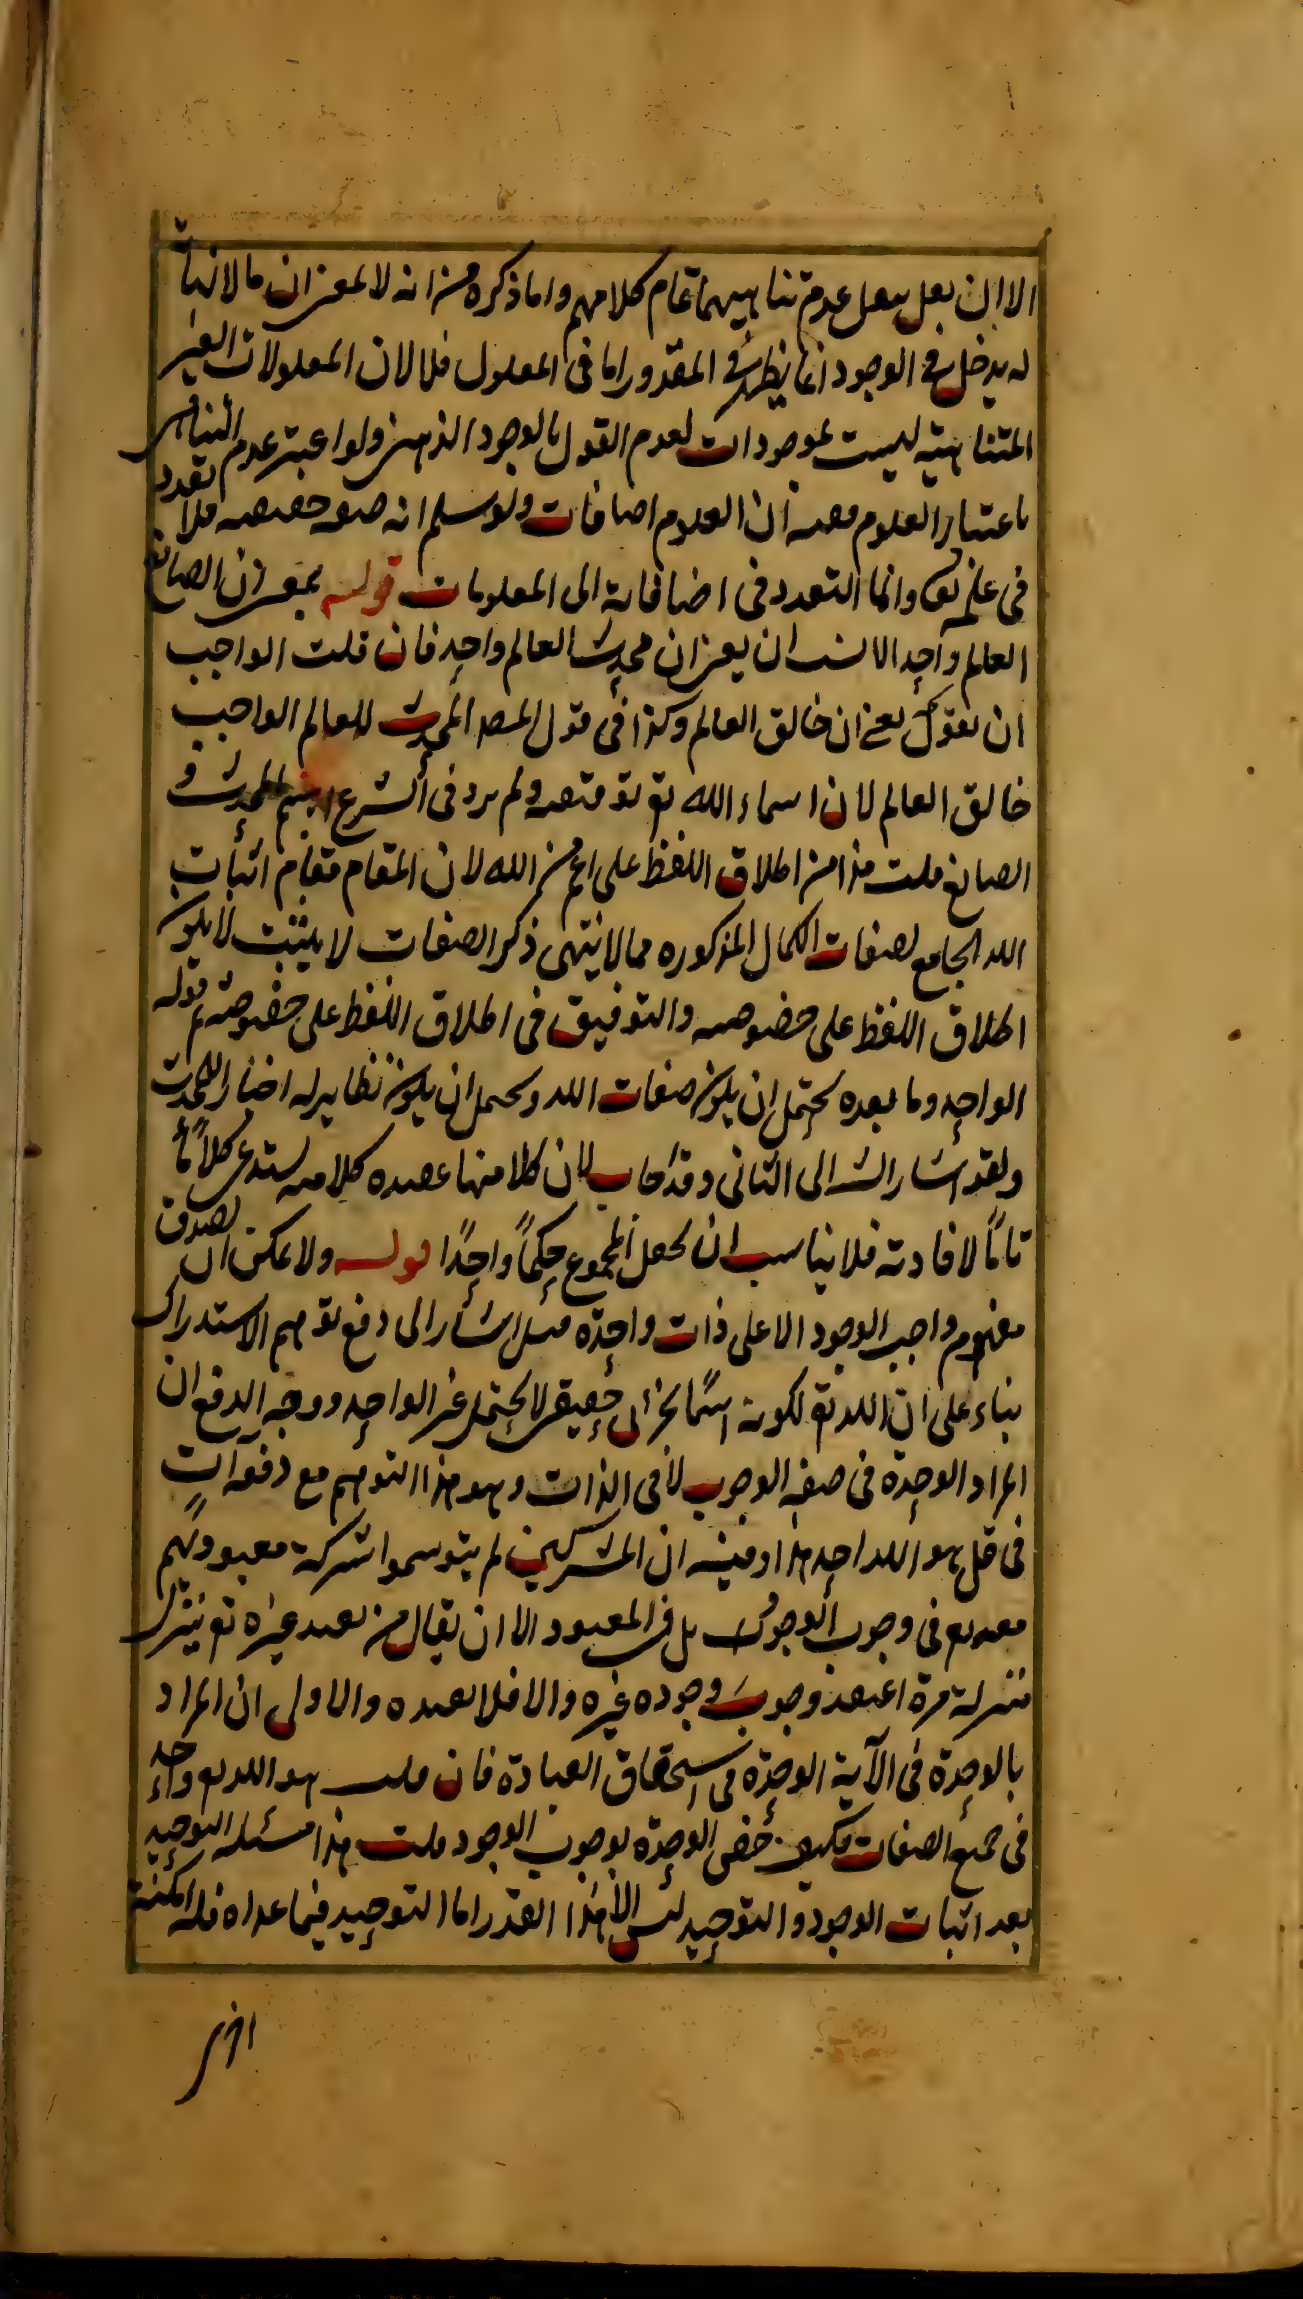 الا ان يعل بيعل عدم تناهيهما تمام كلامهم واما ذكره من انه لا بمعنى ان ما لا نهاية
له يدخل في الوجود انما يظهر في المقدور اما في المعلول فلا لان المعلولات الغير
المتناهية ليست بموجودات لعدم القول بالوجود الذهني ولو اعتبر عدم التناهي
باعتبار العلوم فمعه ان العلوم اضافات ولو سلم انه صفه حقيقيه فلا تعدد
في علمه تعالى وانما التعدد في اضافاته الى المعلومات قوله يعني ان الصانع
العالم واحد الانسب ان يعني ان محدث العالم واحد فان قلت الواجب
ان يقول يعني ان خالق العالم وكذا في قول المصـ المحدث للعالم الواجب
خالق العالم لان اسماء الله تع توقيفيه ولم يرد في الشرع اسم المحدث و
الصانع قلت هذا من اطلاق اللفظ على اعم من الله لان المقام مقام اثبات
الله الجامع لصفات الكمال المذكوره فما لا ينتهى ذكر الصفات لا يثبت لا يكون
اطلاق اللفظ على خصوصه والتوفيق في اطلاق اللفظ على خصوصه ثم قوله
الواحد وما بعده يحتمل ان يكون صفات الله ويحتمل ان يكون نظاير له اخبارا للمحدث
ولقد اشار الشـ الى الثاني وقد اجاب لان كلا منها عقيده كلاميه يستدعى كلاما
تاما لافادته فلا يناسب ان يجعل المجموع حكما واحدا قوله ولا يمكن ان يصدق
مفهوم واجب الوجود الا على ذات واحدة قيل اشار الى دفع توهم الاستدراك
بناء على ان الله تع لكونه اسما لجزئى حقيقى لا يحتمل غير الواحد ووجه الدفع ان
المراد الوحدة في صفة الوجوب لا في الذات وهو هذا التوهم مع دفعه آت
في قل هو الله احد هذا وفيه ان المشركين لم يتوسموا شركة معبوديهم
معه تع في وجوب الوجود بل في المعبود الا ان يقال من يعبد غيره تع ينزل
منزلة من اعتقد وجوب وجوده غيره والا فلا يعبده والاولى ان المراد
بالوحدة في الآية الوحدة في استحقاق العبادة فان قلت هو الله تع واحد
في جميع الصفات فكيف خص الوحدة بوجوب الوجود قلت هذا مسئله التوحيد
بعد اثبات الوجود والتوحيد ليس الا هذا القدر اما التوحيد فيما عداه فله امكنة
اخرى